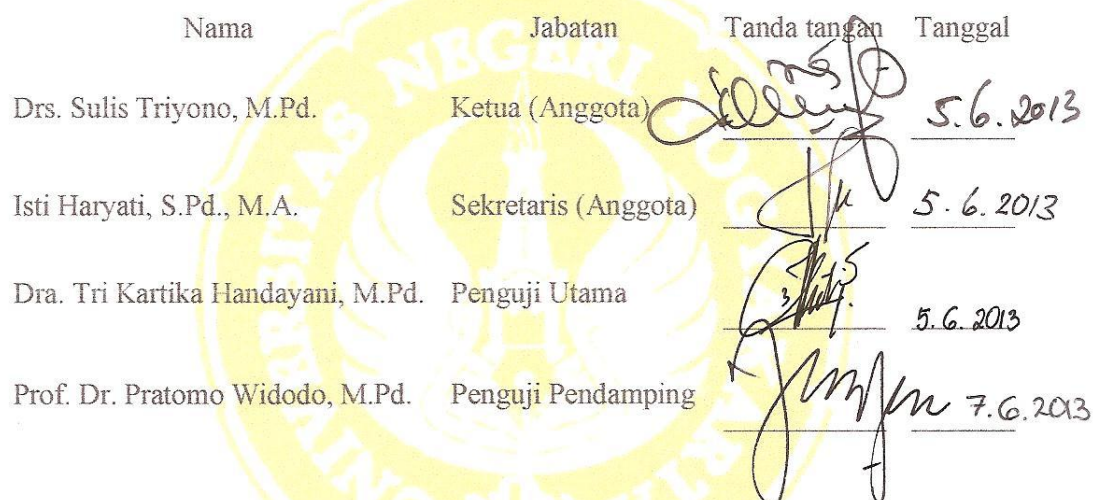 Nama Jabatan Tanda tangan Tanggal
Drs. Sulis Triyono, M.Pd. Ketua (Anggota) 5.6.2013
Isti Haryati, S.Pd., M.A. Sekretaris (Anggota) 5.6.2013
Dra. Tri Kartika Handayani, M.Pd. Penguji Utama 5.6.2013
Prof. Dr. Pratomo Widodo, M.Pd. Penguji Pendamping 7.6.2013